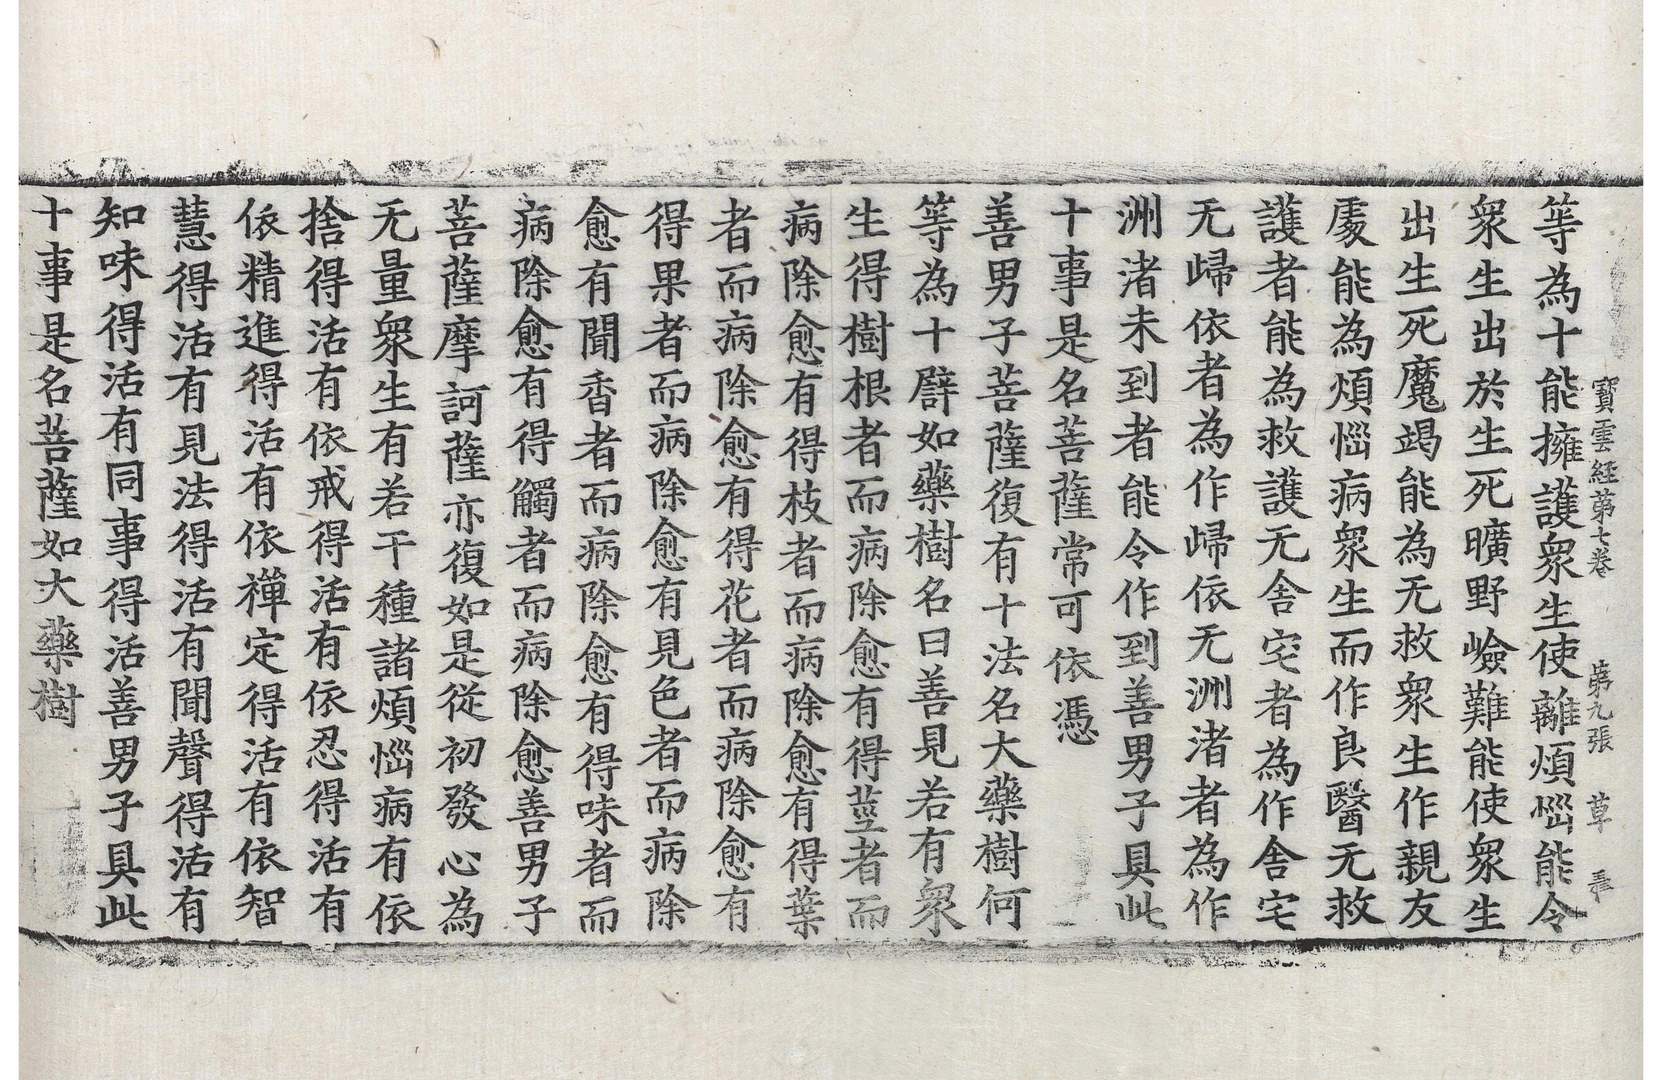 寶雲經第七卷　第九張　草
等為十能擁護眾生使離煩惱能令
眾生出於生死曠野嶮難能使眾生
出生死魔竭能為无救眾生作親友
䖏能為煩惱病眾生而作良醫无救
護者能為救護无舍宅者為作舍宅
无歸依者為作歸依无洲渚者為作
洲渚未到者能令作到善男子具此
十事是名菩薩常可依憑
善男子菩薩復有十法名大藥樹何
等為十譬如藥樹名曰善見若有眾
生得樹根者而病除愈有得莖者而
病除愈有得枝者而病除愈有得葉
者而病除愈有得花者而病除愈有
得果者而病除愈有見色者而病除
愈有聞香者而病除愈有得味者而
病除愈有得觸者而病除愈善男子
菩薩摩訶薩亦復如是從初發心為
无量眾生有若干種諸煩惱病有依
捨得活有依戒得活有依忍得活有
依精進得活有依禪定得活有依智
慧得活有見法得活有聞聲得活有
知味得活有同事得活善男子具此
十事是名菩薩如大藥樹